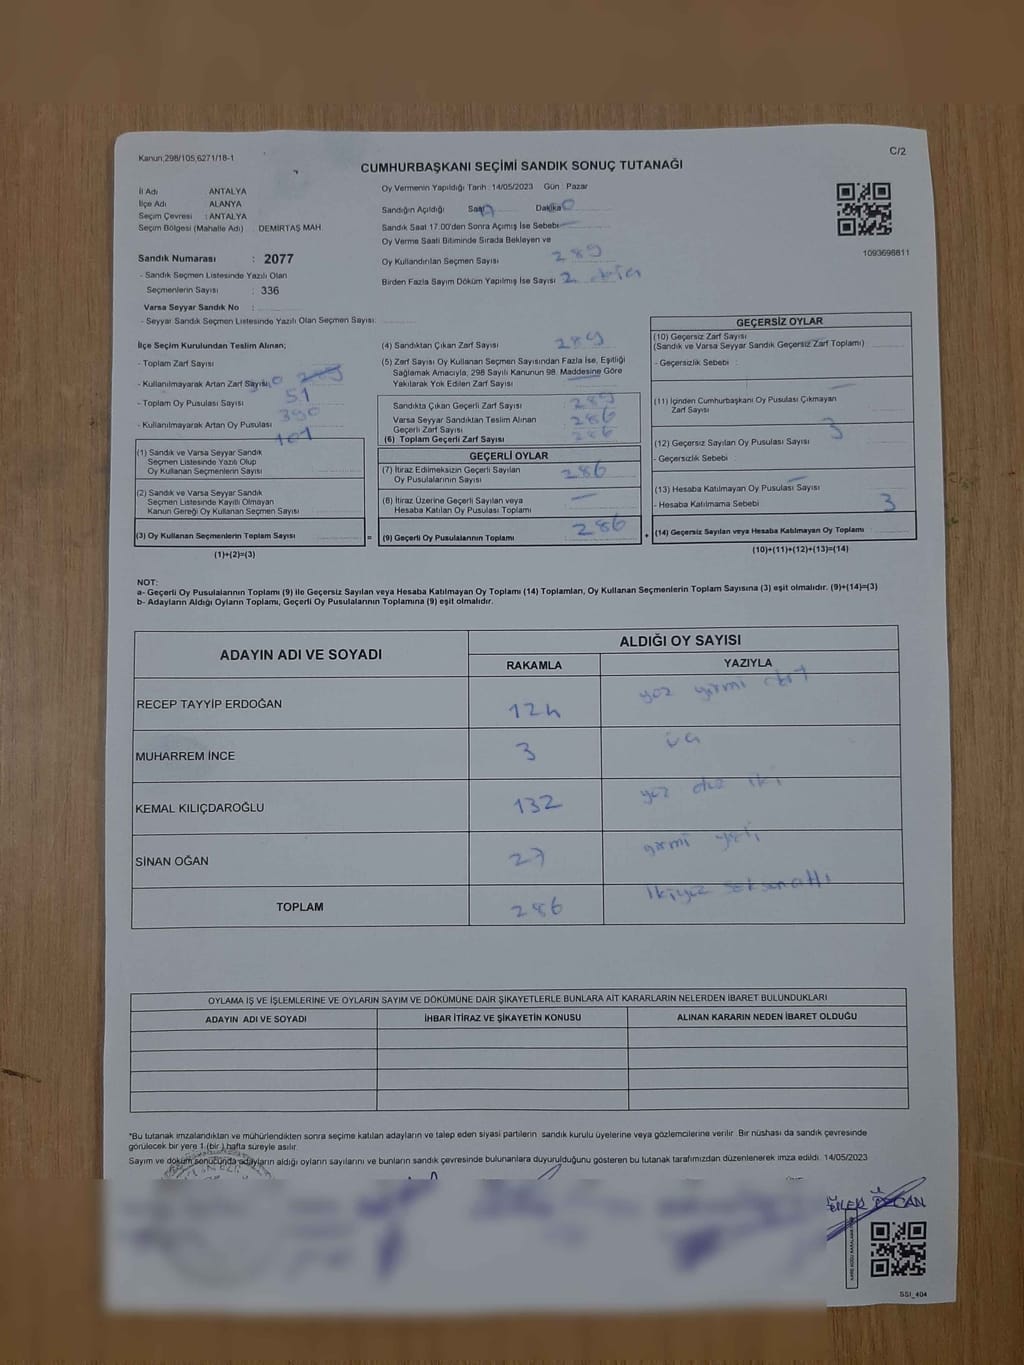 Kanun;298/105,6271/18-1
C/2
CUMHURBAŞKANI SEÇİMİ SANDIK SONUÇ TUTANAĞI
İl Adı ANTALYA
İlçe Adı ALANYA
Seçim Çevresi : ANTALYA
Seçim Bölgesi (Mahalle Adı) : DEMİRTAŞ MAH.
Sandık Numarası : 2077
- Sandık Seçmen Listesinde Yazılı Olan
Seçmenlerin Sayısı : 336
Varsa Seyyar Sandık No :
- Seyyar Sandık Seçmen Listesinde Yazılı Olan Seçmen Sayısı:
Oy Vermenin Yapıldığı Tarih : 14/05/2023 Gün : Pazar
Sandığın Açıldığı Saat 17 Dakika
Sandık Saat 17.00'den Sonra Açımış İse Sebebi
Oy Verme Saati Bitiminde Sırada Bekleyen ve
Oy Kullandırılan Seçmen Sayısı 289
Birden Fazla Sayım Döküm Yapılmış İse Sayısı 2 defa
1093698811
İlçe Seçim Kurulundan Teslim Alınan;
- Toplam Zarf Sayısı
- Kullanılmayarak Artan Zarf Sayısı
- Toplam Oy Pusulası Sayısı 51
390
- Kullanılmayarak Artan Oy Pusulası
101
(1) Sandık ve Varsa Seyyar Sandık
Seçmen Listesinde Yazılı Olup
Oy Kullanan Seçmenlerin Sayısı
(2) Sandık ve Varsa Seyyar Sandık
Seçmen Listesinde Kayıtlı Olmayan
Kanun Gereği Oy Kullanan Seçmen Sayısı
(3) Oy Kullanan Seçmenlerin Toplam Sayısı =
(1)+(2)=(3)
(4) Sandıktan Çıkan Zarf Sayısı 289
(5) Zarf Sayısı Oy Kullanan Seçmen Sayısından Fazla İse, Eşitliği
Sağlamak Amacıyla, 298 Sayılı Kanunun 98. Maddesine Göre
Yakılarak Yok Edilen Zarf Sayısı
Sandıkta Çıkan Geçerli Zarf Sayısı : 289
Varsa Seyyar Sandıktan Teslim Alınan
Geçerli Zarf Sayısı : 286
(6) Toplam Geçerli Zarf Sayısı : 286
GEÇERLİ OYLAR
(7) İtiraz Edilmeksizin Geçerli Sayılan
Oy Pusulalarının Sayısı : 286
(8) İtiraz Üzerine Geçerli Sayılan veya
Hesaba Katılan Oy Pusulası Toplamı
(9) Geçerli Oy Pusulalarının Toplamı : 286 +
GEÇERSİZ OYLAR
(10) Geçersiz Zarf Sayısı
(Sandık ve Varsa Seyyar Sandık Geçersiz Zarf Toplamı)
- Geçersizlik Sebebi :
(11) İçinden Cumhurbaşkanı Oy Pusulası Çıkmayan
Zarf Sayısı
(12) Geçersiz Sayılan Oy Pusulası Sayısı 3
- Geçersizlik Sebebi :
(13) Hesaba Katılmayan Oy Pusulası Sayısı
- Hesaba Katılmama Sebebi 3
(14) Geçersiz Sayılan veya Hesaba Katılmayan Oy Toplamı
(10)+(11)+(12)+(13)=(14)
NOT:
a- Geçerli Oy Pusulalarının Toplamı (9) ile Geçersiz Sayılan veya Hesaba Katılmayan Oy Toplamı (14) Toplamları, Oy Kullanan Seçmenlerin Toplam Sayısına (3) eşit olmalıdır. (9)+(14)=(3)
b- Adayların Aldığı Oyların Toplamı, Geçerli Oy Pusulalarının Toplamına (9) eşit olmalıdır.
ADAYIN ADI VE SOYADI ALDIĞI OY SAYISI
RAKAMLA YAZIYLA
RECEP TAYYİP ERDOĞAN 124 yüz yirmi dört
MUHARREM İNCE 3 üç
KEMAL KILIÇDAROĞLU 132 yüz otuz iki
SİNAN OĞAN 27 yirmi yedi
TOPLAM 286 ikiyüz seksenaltı
OYLAMA İŞ VE İŞLEMLERİNE VE OYLARIN SAYIM VE DÖKÜMÜNE DAİR ŞİKAYETLERLE BUNLARA AİT KARARLARIN NELERDEN İBARET BULUNDUKLARI
ADAYIN ADI VE SOYADI İHBAR İTİRAZ VE ŞİKAYETİN KONUSU ALINAN KARARIN NEDEN İBARET OLDUĞU
*Bu tutanak imzalandıktan ve mühürlendikten sonra seçime katılan adayların ve talep eden siyasi partilerin sandık kurulu üyelerine veya gözlemcilerine verilir. Bir nüshası da sandık çevresinde
görülecek bir yere 1 (bir) hafta süreyle asılır.
Sayım ve döküm sonucunda adayların aldığı oyların sayılarını ve bunların sandık çevresinde bulunanlara duyurulduğunu gösteren bu tutanak tarafımızdan düzenlenerek imza edildi. 14/05/2023
SSI_404